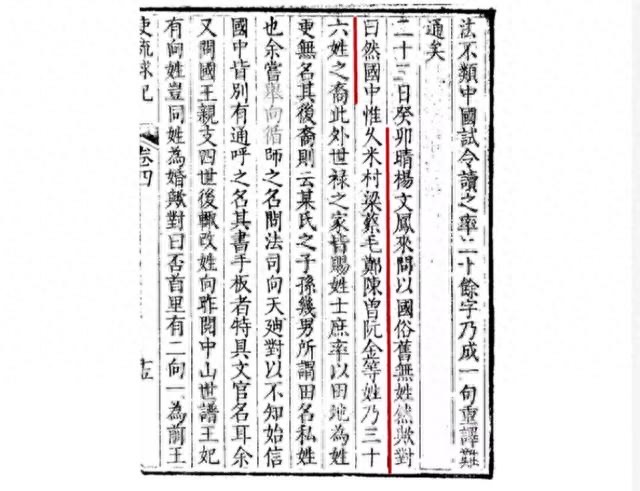 法不類中國試令讀之率二十餘字乃成一句重譯難
通矣
二十三日癸卯晴楊文鳳來問以國俗舊無姓然歟對
曰然國中惟久米村梁蔡毛鄭陳曾阮金等姓乃三十
六姓之裔此外世祿之家皆賜姓士庶率以田地為姓
更無名其後裔則云某氏之子孫幾男所謂田名私姓
也余嘗舉向循師之名問法司向天迪對以不知始信
國中皆別有通呼之名其書手板者特具文官名耳余
又問國王親支四世後輙改姓向昨閱中山世譜王妃
有向姓豈同姓為婚歟對曰否首里有二向一為前王
使琉球記 卷四